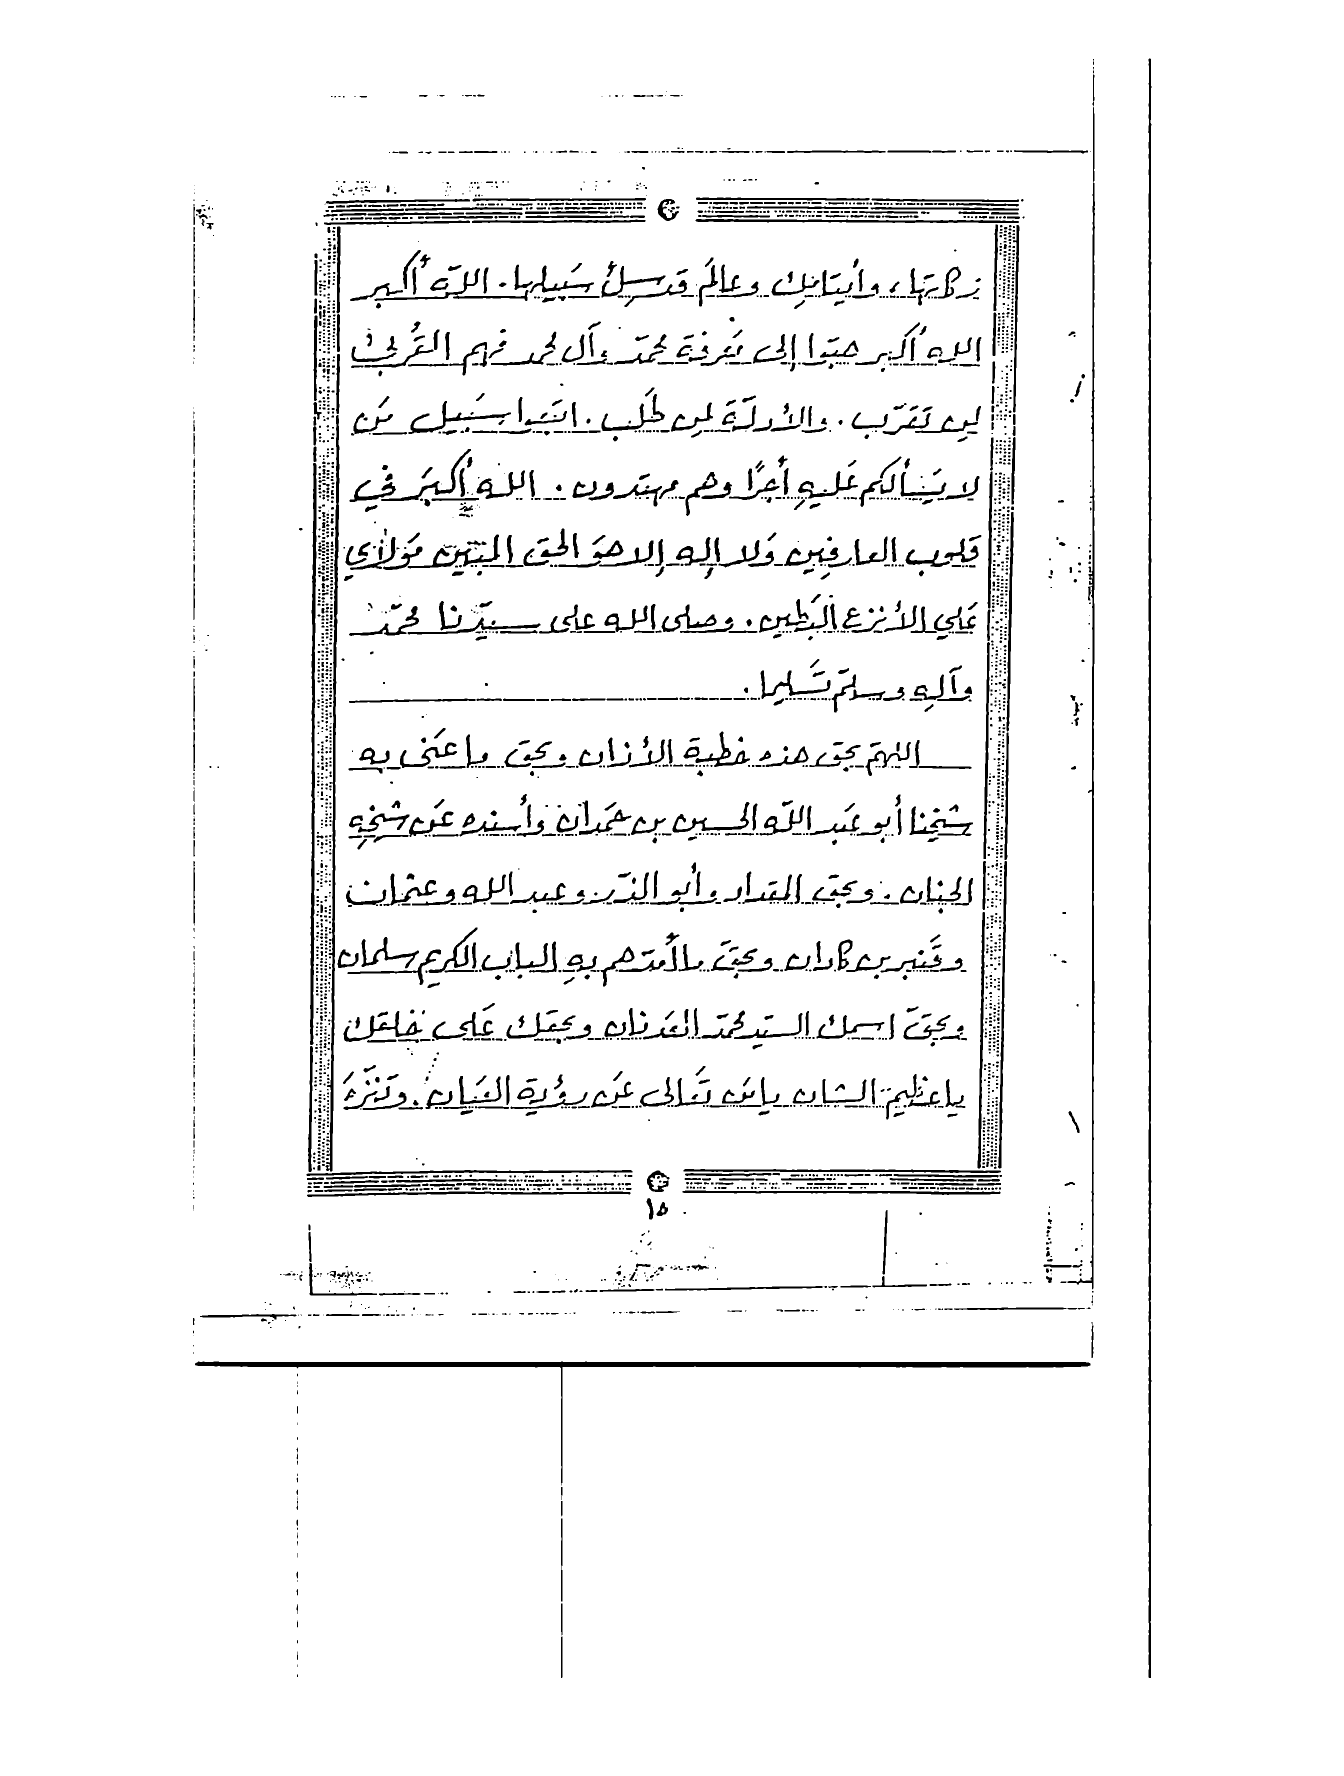 زكاتها، وأيتامك وعالم قدسك سبيلها. الله أكبر
الله أكبر هبّوا إلى معرفة محمّد وآل محمد فهم القُربى
لمن تَقرّب. والأدلّة لمن طلَب. اتبَعوا سَبيل مَن
لا يَسألكم عَليهِ أجرًا وهم مهتدون. الله أكبرَ في
قلوب العارفين وَلا إله إلا هوَ الحق المبين مَولاي
عَلي الأنزع البَطين. وصلى الله على سيّدنا محمّد
وآلهِ وسلمّ تَسليما.
اللهمّ بحق هذه خطبة الأذان وبحق ما عَنى به
شيخنا أبو عَبد الله الحسين بن حَمدان وأسنده عَن شيخهِ
الجنان. وبحق المقداد وأبو الذّر وعبد الله وعثمان
وقَنبر بن كادان وبحقّ ما أمدّهم بهِ الباب الكريم سلمان
وبحقّ اسمك السيّد محمّد العَدنان وبحقك عَلى خلقك
يا عظيم الشان يا مَن تَعالى عَن رؤية العَيان. وتنَزّهَ
١٥